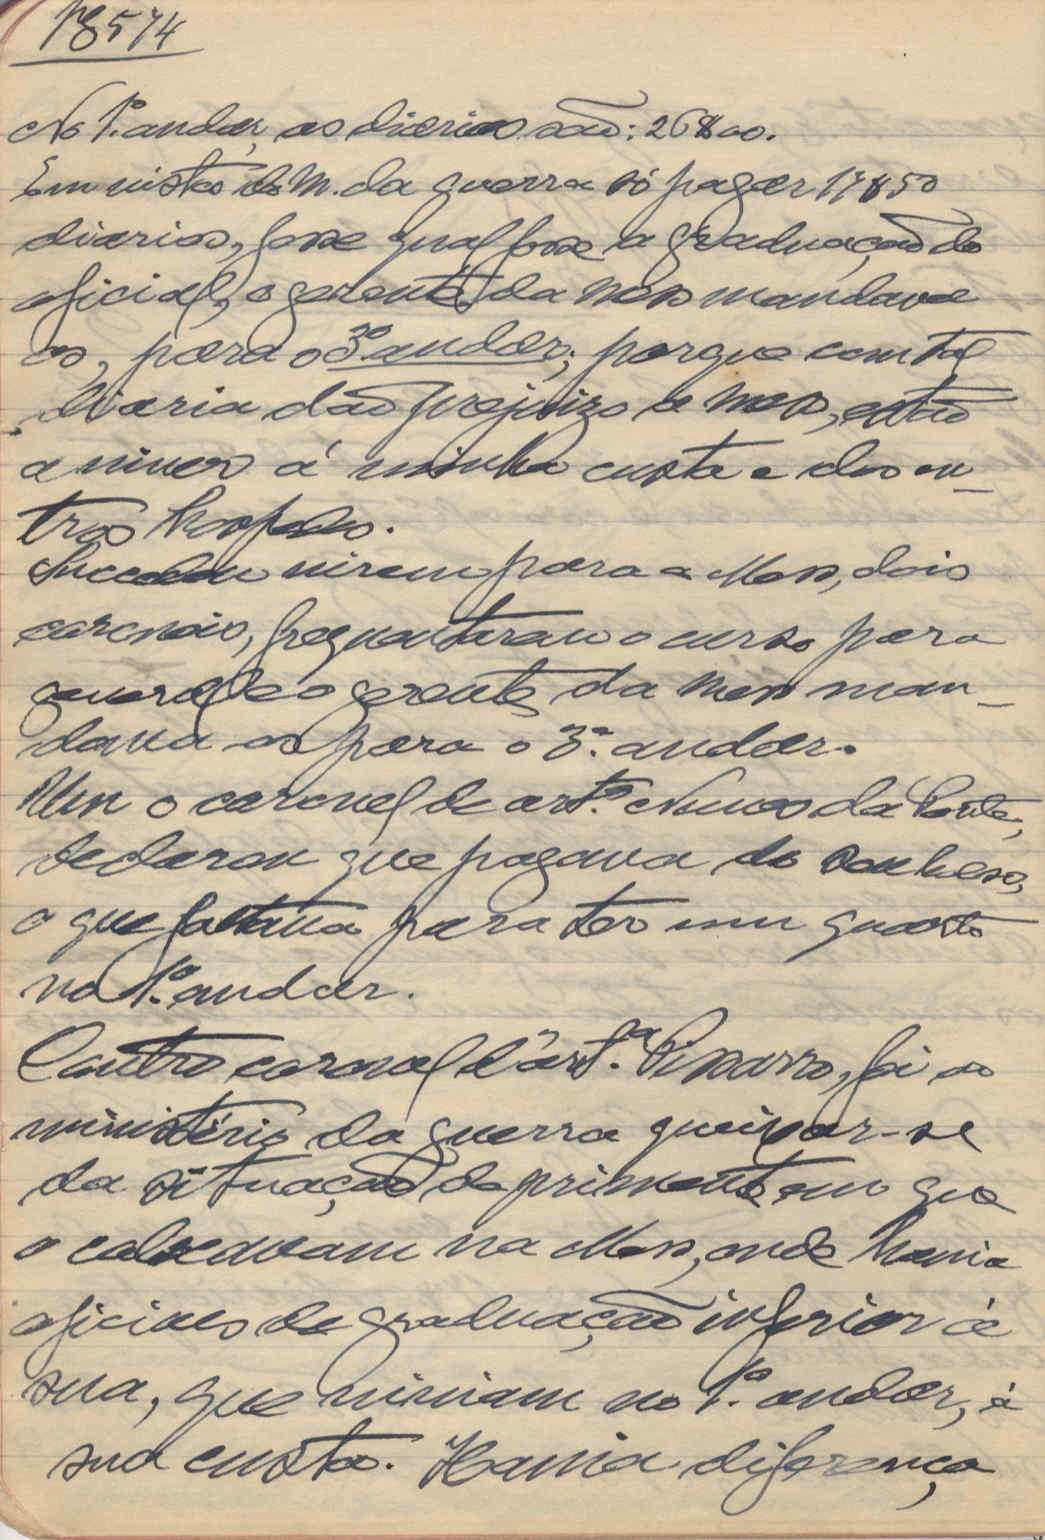 18574
No 1º. andar, as diarias são: 26$00.
Em vista do M. da guerra só pagar 17$50
diarios, fosse qual fosse a graduação do
oficial, o gerente da Mess mandava
os, para o 3º. andar; porque com tal
diaria dão prejuizo á Mess, então
a viver á minha custa e dos ou-
tros hospedes.
Succedeu virem para a Mess, dois
coroneis, frequentaram o curso para
general e o gerente, da Mess man-
dava os para o 3º. andar.
Um o coronel de artª. Nunes da Ponte,
declarou que pagava do seu bolso,
o que faltava para ter um quarto
no 1º. andar.
Outro coronel d'artª. Pissarro, foi ao
ministério da guerra queixar-se
da situação deprimente em que
o colocavam na Mess, onde havia
oficiaes de graduação inferior á
sua, que viviam no 1º. andar, á
sua custa. Havia diferença